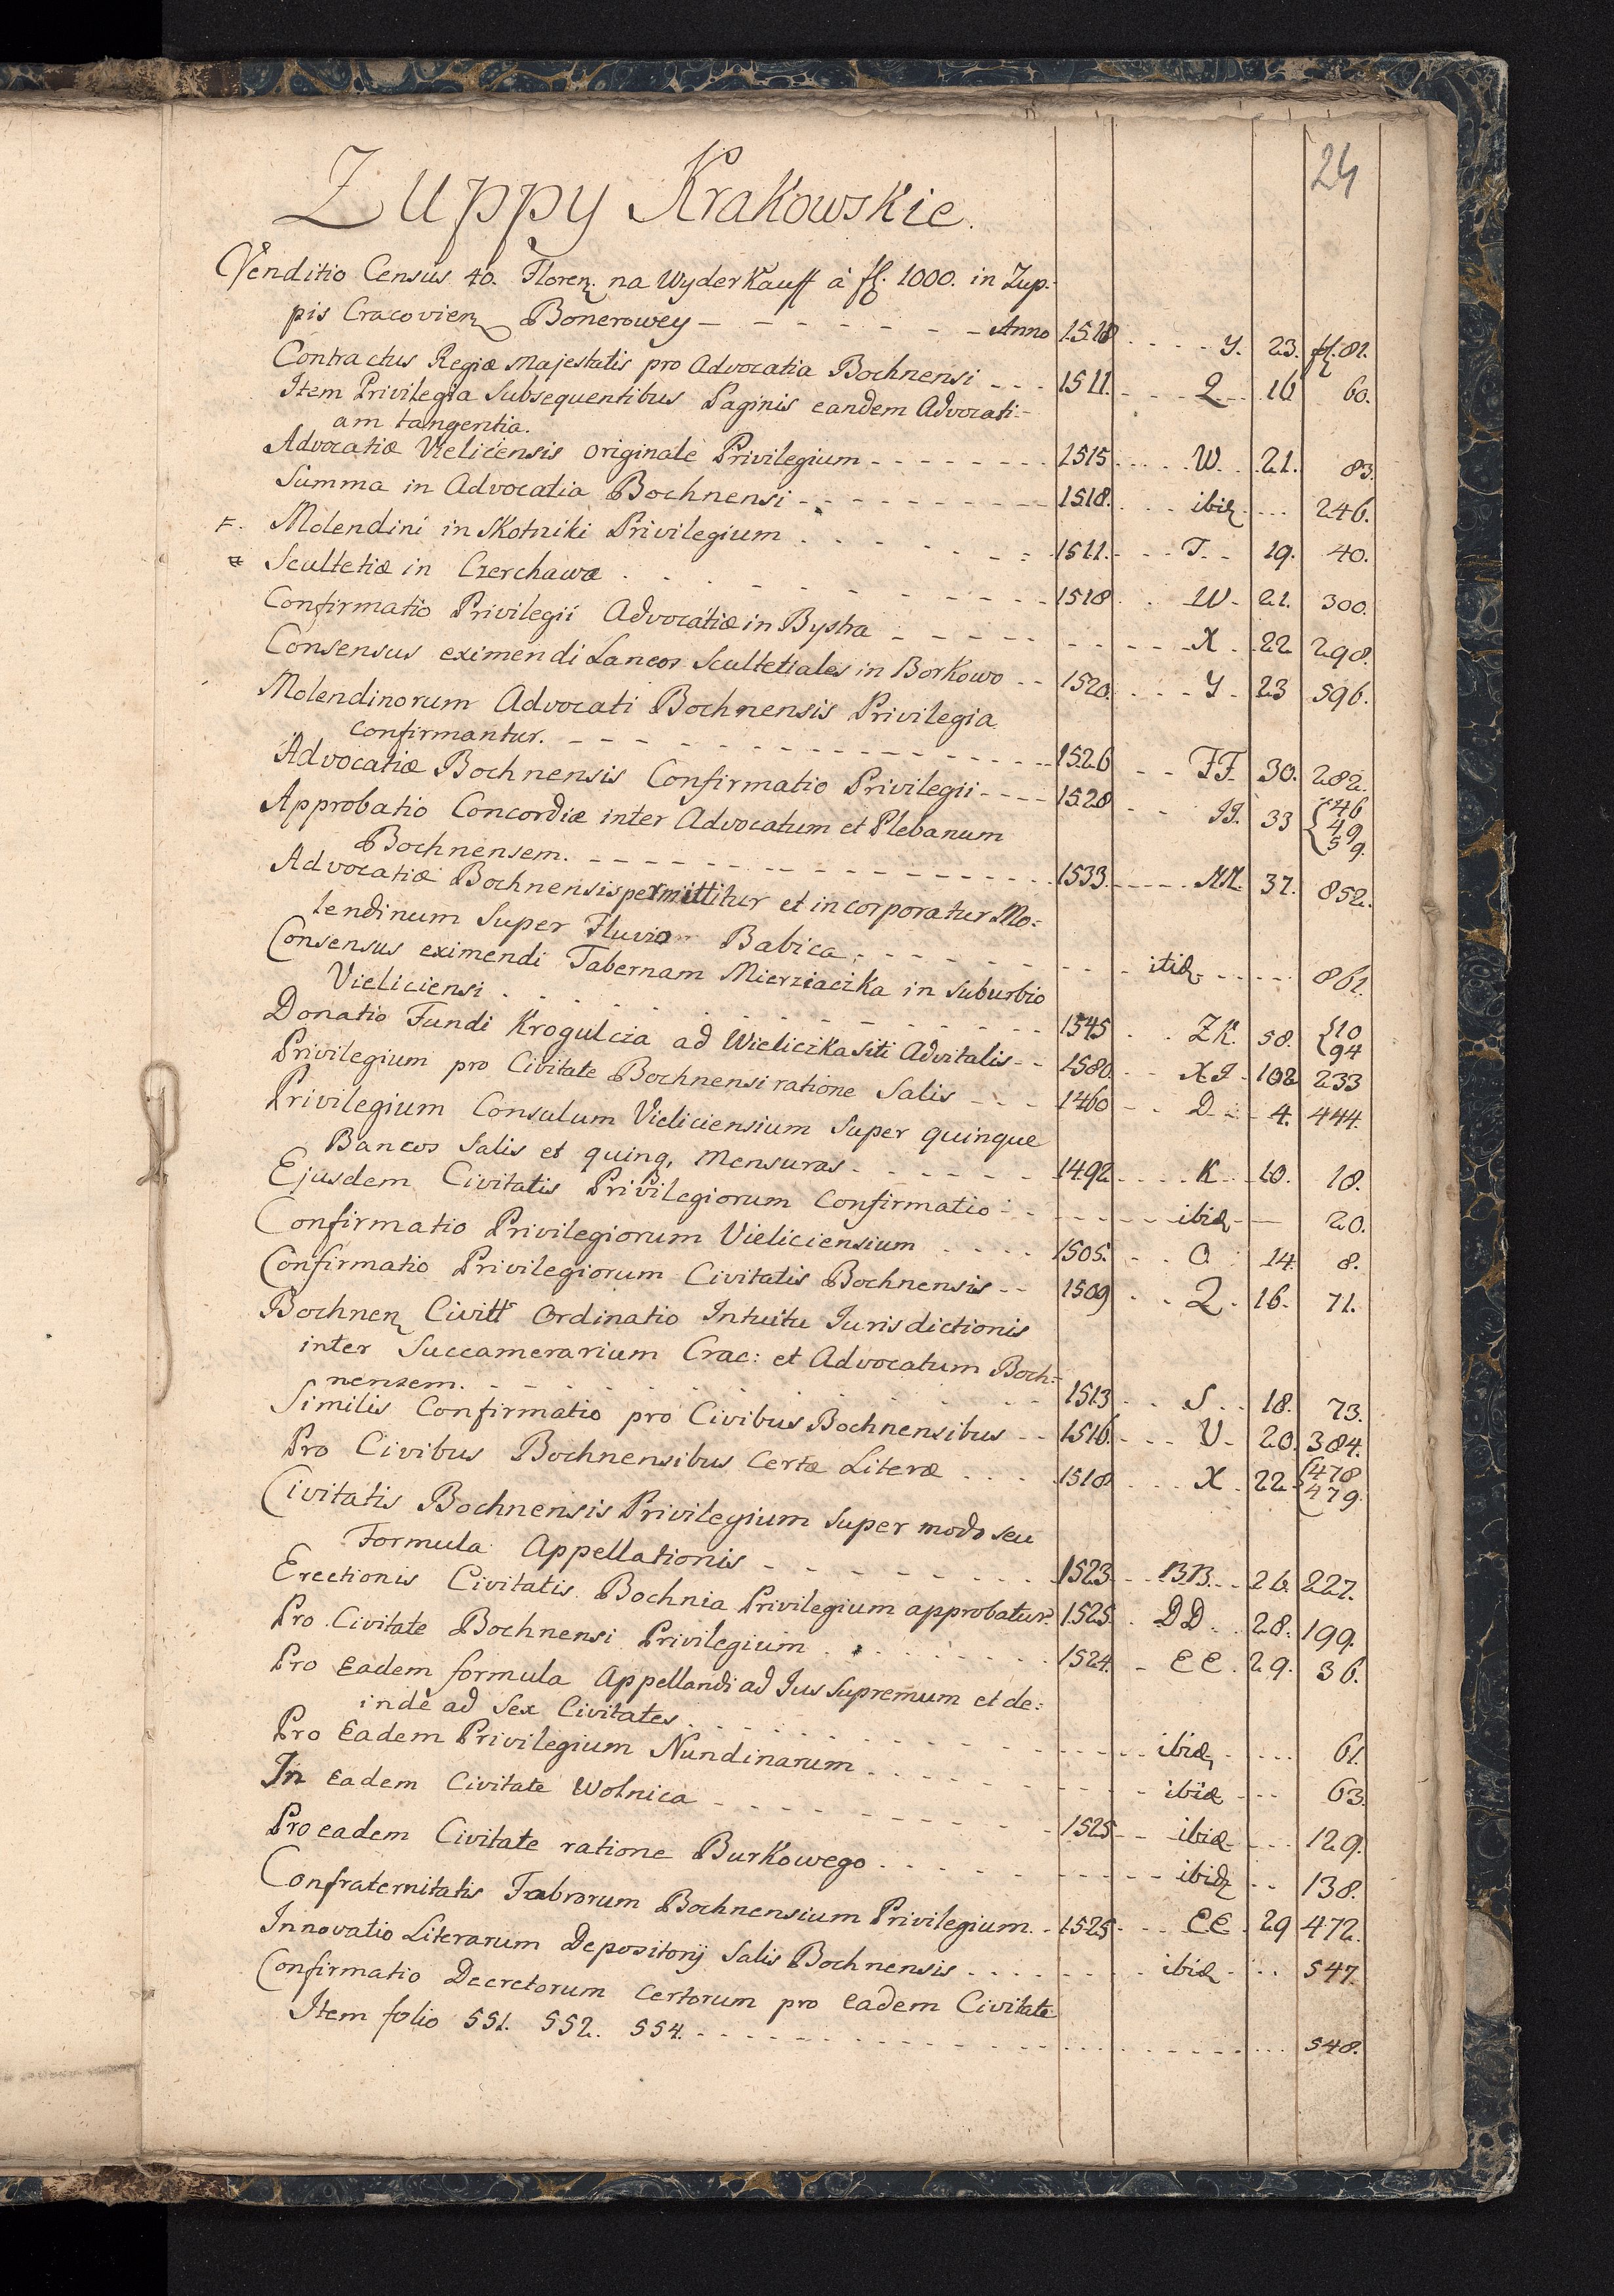 24
Zuppy Krakowskie.
Venditio Censûs 40. Floren. na Wyderkauff à fl. 1000. in Zup-
pis Cracovien Bonerowey - - - - - - - Anno 1518 . . . . y. 23. fl. 81.
Contractus Regiæ Majestatis pro Advocatia Bochnensi - - - 1511. - - - Q - - 16 60.
Item Privilegia Subsequentibus Paginis eandem Advocati-
am tangentia.
Advocatiæ Vieliciensis originale Privilegium - - - - - - - - 1515 . . . . . W. . . 21. 83.
Summa in Advocatia Bochnensi - - - - - - - - - - 1518. . . . ibid . . . . 246.
F. Molendini in Skotniki Privilegium . . - - - - - - 1511. - - - T. - - 19. 40.
Scultetiæ in Czerchawa . . . - - - - - - - - 1518 . . W - 21. 300.
Confirmatio Privilegii Advocatiæ in Bystra - - - - - - - - - - X . . 22 298.
Consensus eximendi Laneos Scultetiales in Borkowo - - 1520. . . . - y - 23 596.
Molendinorum Advocati Bochnensis Privilegia
Confirmantur. - - - - - - - - - - - - - - - - 1526 - - FF. 30. 282.
Advocatiæ Bochnensis Confirmatio Privilegii - - - - 1528 - - JJ. 33 {46 49 59.
Approbatio Concordiæ inter Advocatum et Plebanum
Bochnensem. - - - - - - - - - - - - - - - 1533. - - - - MM. 37. 852.
Advocatiæ Bochnensis permittitur et incorporatur Mo-
lendinum Super Fluvio Babica . - - - - - - - - - - ibid - - - - - 861.
Consensus eximendi Tabernam Mierziaczka in suburbio
Vieliciensi . . . - - - - - - - - - - - 1545 . . . ZK. 58. {10 94
Donatio Fundi Krogulcza ad Wieliczka siti Advitalis - - 1580. - - XJ - 102 233
Privilegium pro Civitate Bochnensi ratione Salis - - - 1460 - - D - - 4. 444.
Privilegium Consulum Vieliciensium Super quinque
Bancos Salis et quinq, mensuras - - - - - - - 1492 - - - - K - - 10. 18.
Ejusdem Civitatis Privilegiorum Confirmatio - - - - - - - - ibid - — 20.
Confirmatio Privilegiorum Vieliciensium . . . . . 1505. - - . O . 14. 8.
Confirmatio Privilegiorum Civitatis Bochnensis - - 1509 . . . Q . 16. 71.
Bochnen Civitt Ordinatio Intuitu Jurisdictionis
inter Succamerarium Crac: et Advocatum Boch-
nensem. - - . . . . . . . . . 1513 . . S . . 18. 73.
Similis Confirmatio pro Civibus Bochnensibus - - 1516. - - - V - 20. 384.
Pro Civibus Bochnensibus Certæ Literæ . . . . 1518 . . . X . 22. {478 479.
Civitatis Bochnensis Privilegium super modo seu
Formula Appellationis - - - - - - - - - - 1523. - - BB. - - 26. 227.
Erectionis Civitatis Bochnia Privilegium approbatur. 1525. . DD. . . 28. 199.
Pro Civitate Bochnensi Privilegium . . . . . . . . 1524. - EE. 29. 36.
Pro Eadem formula Appellandi ad Jus Supremum et de-
inde ad Sex Civitates . . . . . - - - - - - - - - - ibid - . . . . 61.
Pro Eadem Privilegium Nundinarum . . . - - - - - - - - ibid - - - 63.
In Eadem Civitate Wolnica - - - - - - - - - - 1525 - - ibid - . . . 129.
Pro eadem Civitate ratione Burkowego . . . . - - - - - - ibid . . . 138.
Confraternitatis Fabrorum Bochnensium Privilegium. . 1525 - - - EE - 29 472.
Innovatio Literarum Depositorij Salis Bochnensis . . . . . . . . ibid - . . . 547.
Confirmatio Decretorum Certorum pro Eadem Civitate
Item folio 551. 552. 554. . . . . . . . . . . . . . . . . 548.